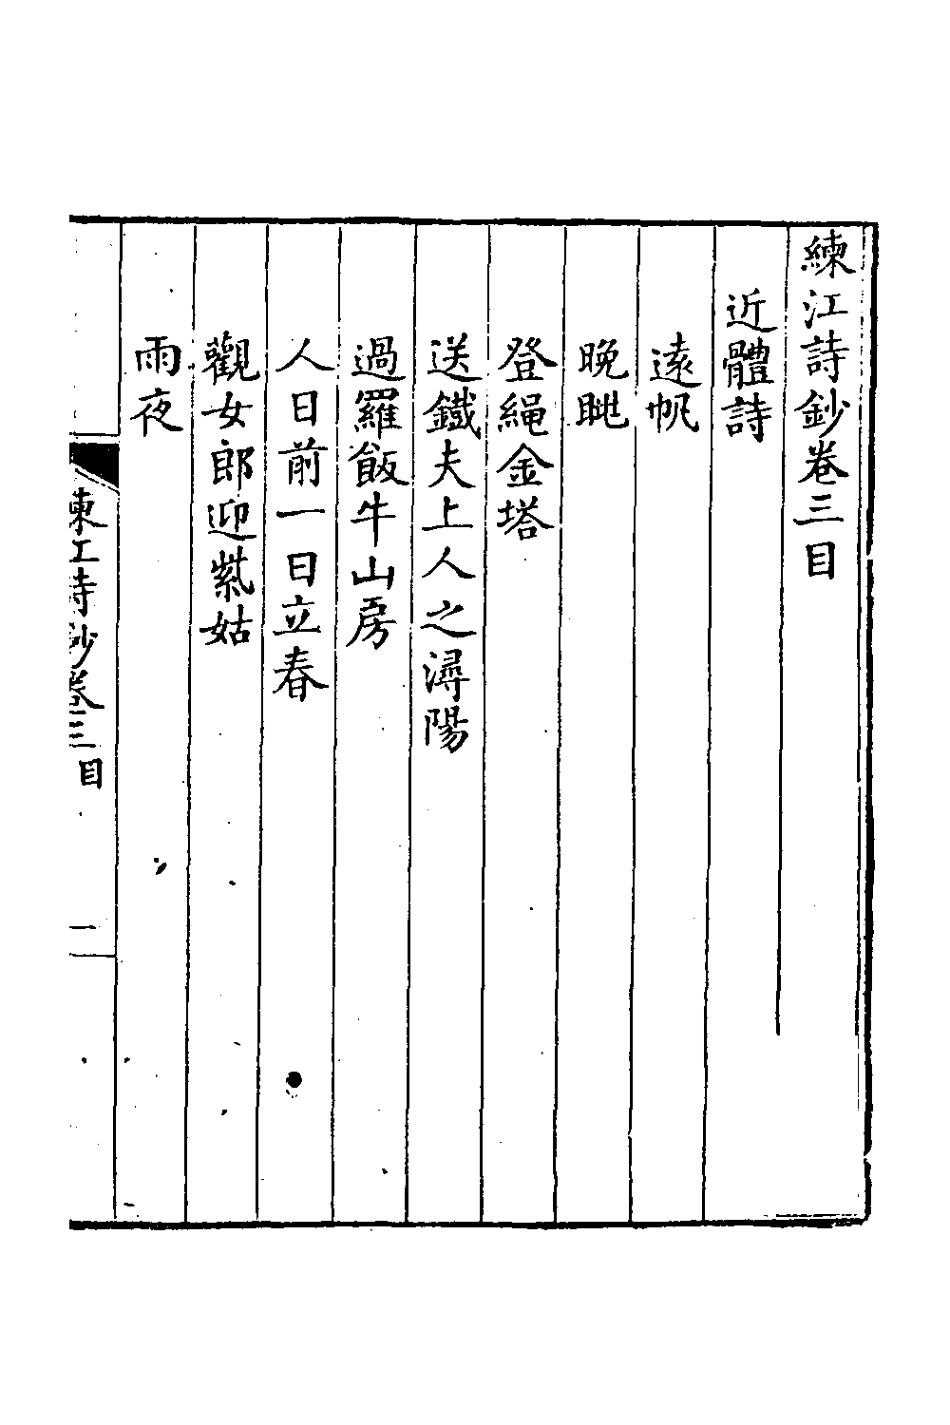 練江詩鈔卷三目
近體詩
遠帆
晚眺
登繩金塔
送鐵夫上人之潯陽
過羅飯牛山房
人日前一日立春
觀女郎迎紫姑
雨夜
練江詩鈔卷三目
一